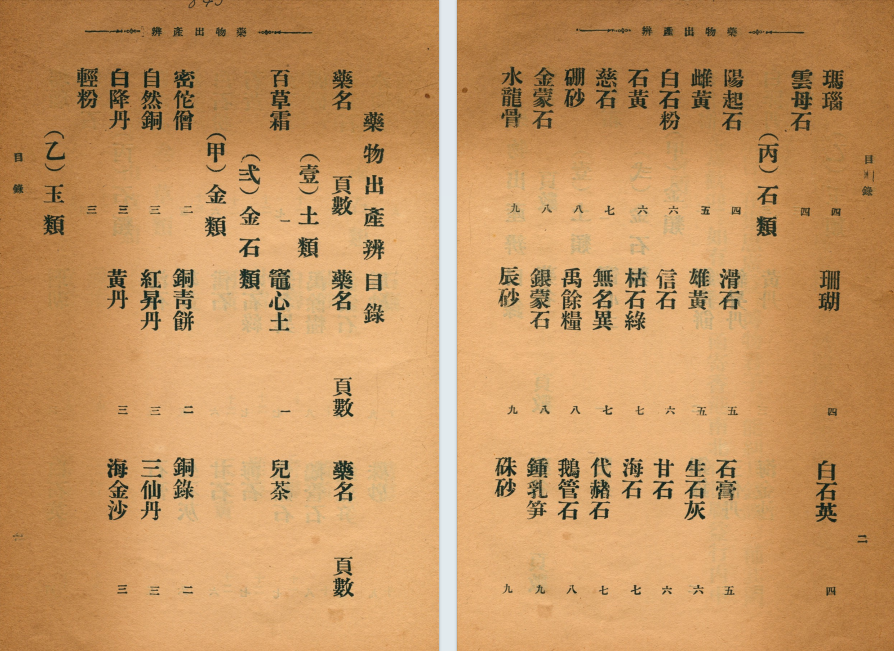 藥物出產辨
藥物出產辨目錄
藥名 頁數 藥名 頁數 藥名 頁數
(壹)土類
百草霜 一 竈心土 一 兒茶
(弍)金石類
(甲)金類
密佗僧 二 銅青餅 二 銅錄 二
自然銅 三 紅昇丹 三 三仙丹 三
白降丹 三 黃丹 三 海金沙 三
輕粉 三
(乙)玉類
目錄
藥物出產辨
目錄
二
瑪瑙 四 珊瑚 四 白石英 四
雲母石 四
(丙)石類
陽起石 四 滑石 五 石膏 五
雌黃 五 雄黃 五 生石灰 六
白石粉 六 信石 六 甘石 六
石黃 六 枯石綠 七 海石 七
慈石 七 無名異 七 代赭石 七
硼砂 八 禹餘糧 八 鵝管石 八
金蒙石 八 銀蒙石 八 鍾乳笋 九
水龍骨 九 辰砂 九 硃砂 九